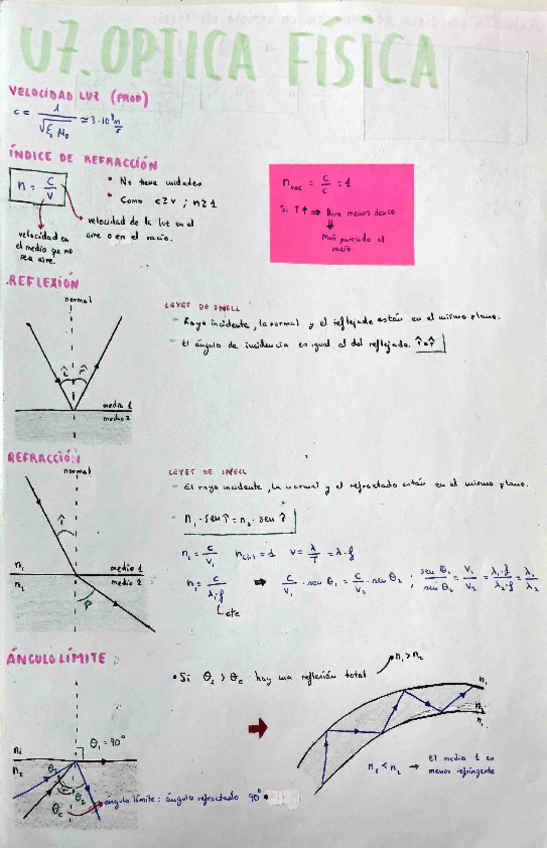 U7. OPTICA FÍSICA
VELOCIDAD LUZ (PROP)
c = 1 / √ξ₀ μ₀ ≃ 3·10⁸ m/s
ÍNDICE DE REFRACCIÓN
n = c/v
• No tiene unidades
• Como c≥v ; n≥1
velocidad de la luz en el
aire o en el vacío.
velocidad en
el medio que no
sea aire.
n vac = c/c = 1
Si T↑ ⇒ Aire menos denso
⇓
Más parecido al
vacío.
REFLEXIÓN
normal
î r̂
medio 1
medio 2
LEYES DE SNELL
- Rayo incidente, la normal y el reflejado están en el mismo plano.
- El ángulo de incidencia es igual al del reflejado. î=r̂
REFRACCIÓN
normal
î
n₁ medio 1
n₂ medio 2
LEYES DE SNELL
- El rayo incidente, la normal y el refractado están en el mismo plano.
- n₁ · sen î = n₂ · sen r̂
n₂ = c/v₁ n aire = 1 v = λ/T = λ·f
n₁ = c/λ₁·f ⇒ c/v₁ · sen θ₁ = c/v₂ · sen θ₂ ; sen θ₁/sen θ₂ = v₁/v₂ = λ₁·f/λ₂·f = λ₁/λ₂
cte
ÁNGULO LÍMITE
• Si θ₂ > θc hay una reflexión total
n₁ > n₂
n₁
n₂
θ₁ = 90°
θ₂
θc
θ₂
ángulo límite: ángulo refractado 90°
n₁
n₂
n₁
n₁ < n₂ → El medio 1 es
menos refringente